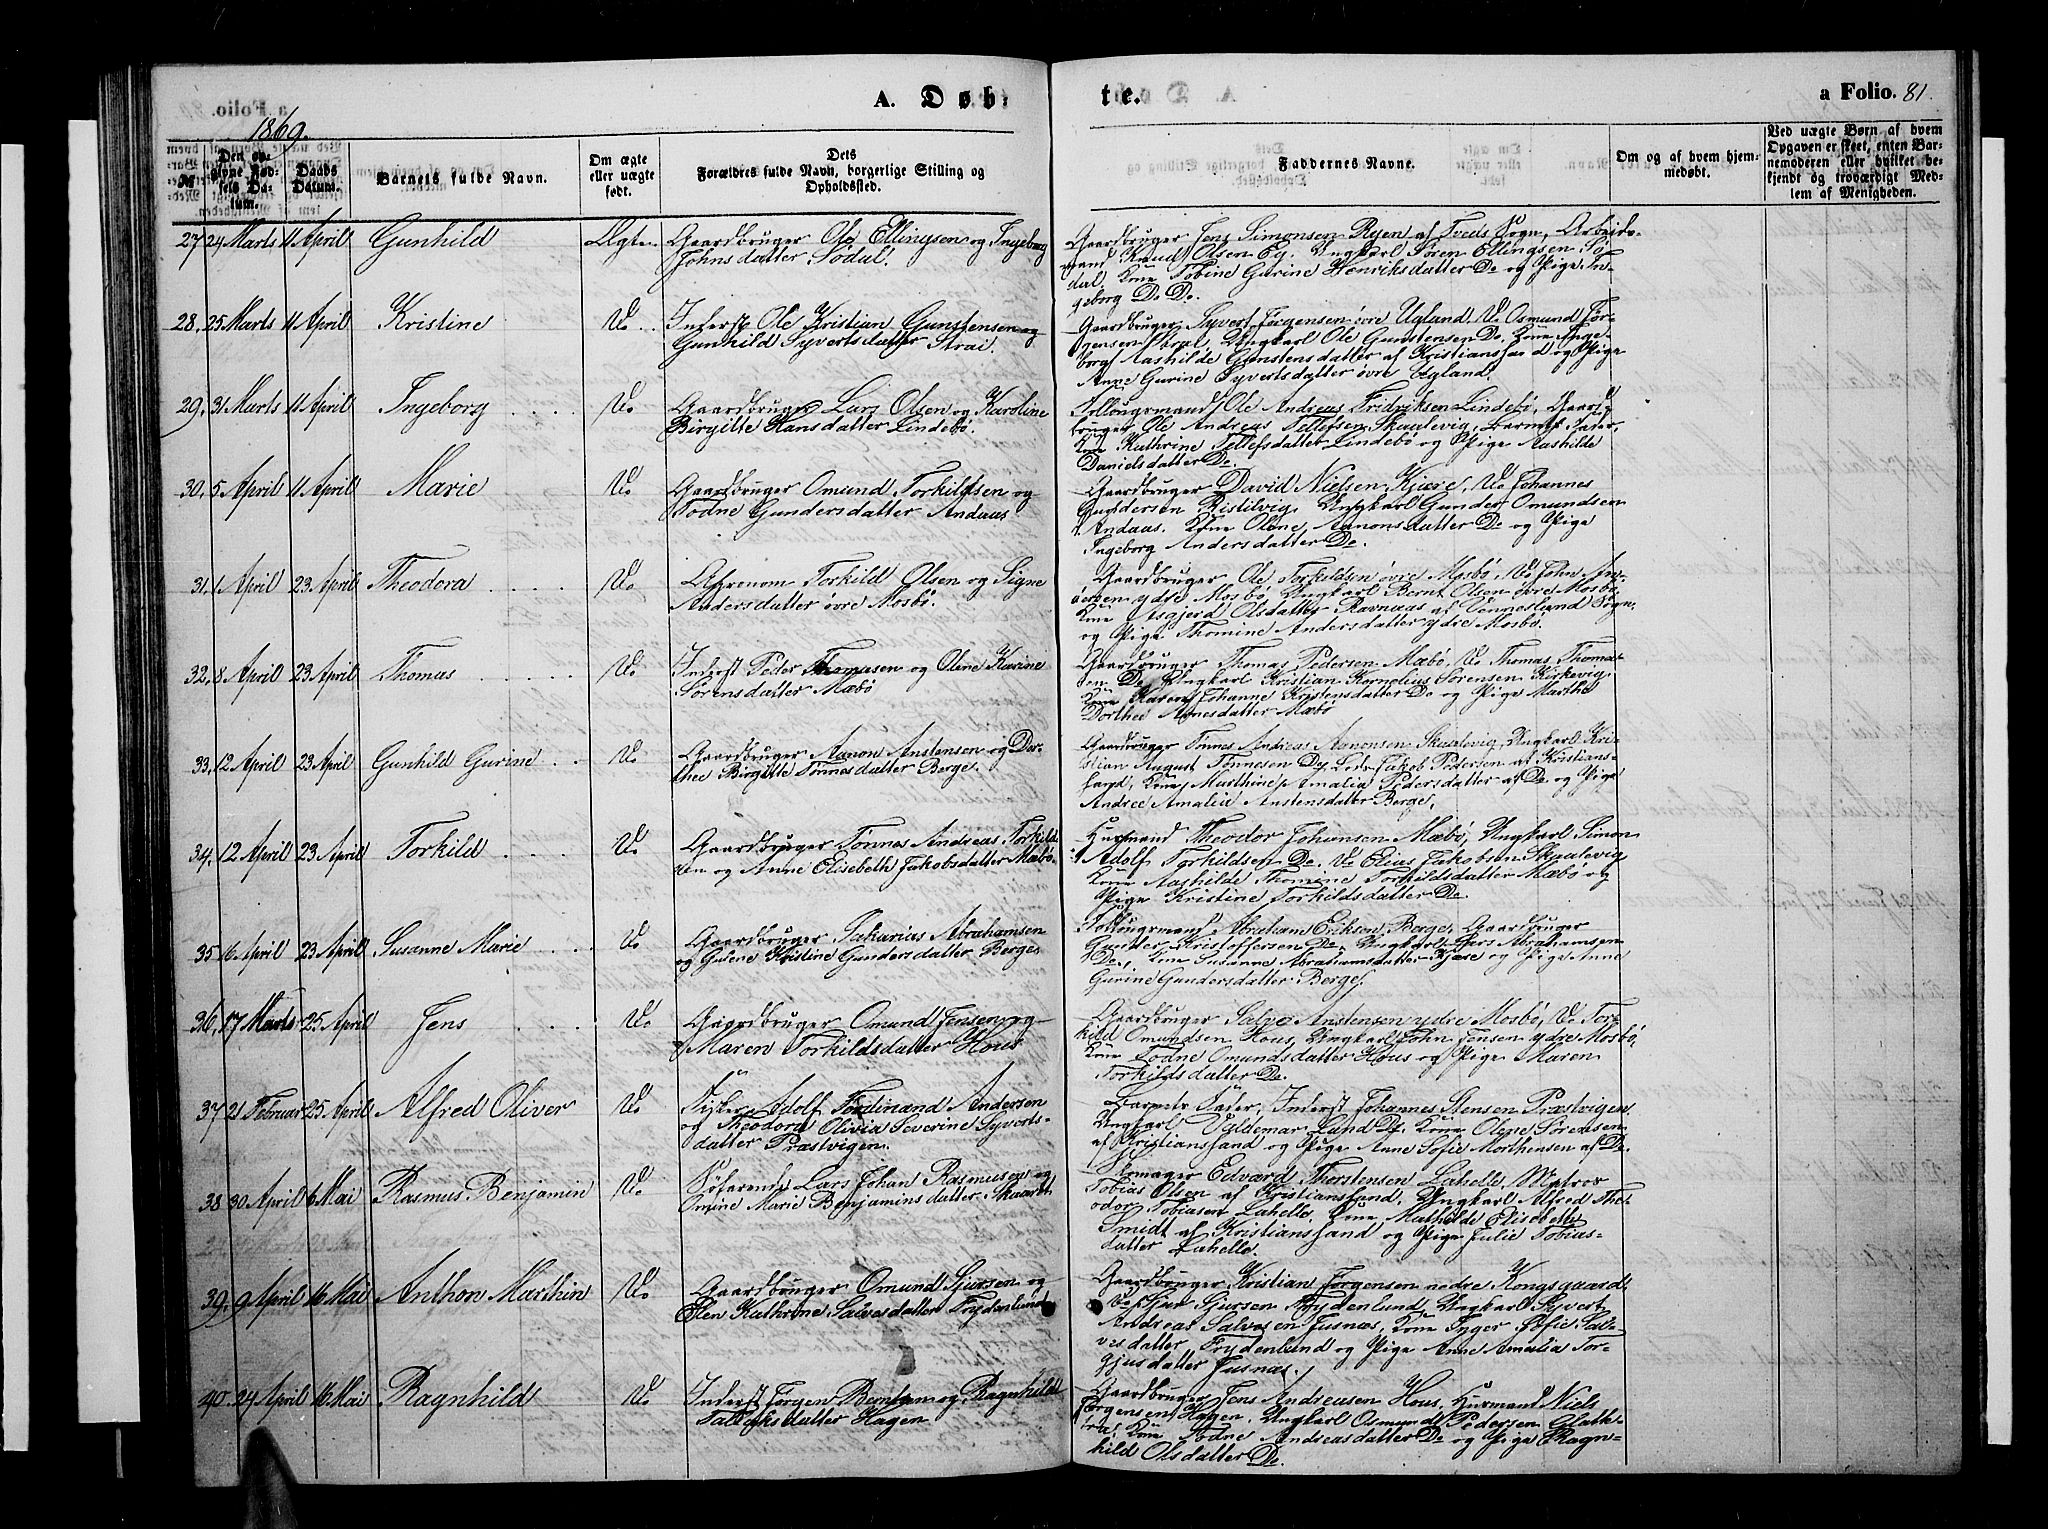 A. Døb-
te.
a Folio. 81.
1869.
№
Den op-
givne Fød-
sels Da-
tum.
Daabs
Datum.
Barnets fulde Navn.
Om ægte
eller uægte
født.
Dets
Forældres fulde Navn, borgerlige Stilling og
Opholdssted.
Faddernes Navne.
Om og af hvem hjem-
medøbt.
Ved uægte Børn af hvem
Opgaven er skeet, enten Bar-
nemoderen eller hvilket be-
kjendt og troværdigt Med-
lem af Menigheden.
27 24 Marts 11 April Gunhild Ægte Gaardbruger Ole Ellingsen og Ingeborg
Johnsdatter Sødal.
Gaardbruger Jens Simonsen Ryen af Tveds Sogn, Arbeids-
mand Knud Olsen Eg. Ungkarl Søren Ellingsen Sø-
dal. Kone Tobine Gurine Henriksdatter Do og Pige In-
geborg Do Do.
28. 25 Marts 11 April Kristine Do Inderst Ole Kristian Gunstensen og
Gunhild Syvertsdatter Strai.
Gaardbruger Syvert Jørgensen øvre Ugland, Do Osmund Jør-
gensen Strai, Ungkarl Ole Gunstensen Do. Kone Inge-
borg Aashilde Gunstensdatter af Kristianssand og Pige
Anne Gurine Syvertsdatter øvre Ugland.
29. 31 Marts 11 April Ingeborg Do Gaardbruger Lars Olsen og Karoline
Birgitte Hansdatter Lindebø.
Ole Andreas Fridriksen Lindebø, Gaard-
bruger Ole Andreas Tellefsen Skaalevig, Barnets Fader,
Kone Kathrine Tellefsdatter Lindebø og Pige Aashilde
Danielsdatter Do.
30. 5 April 11 April Marie Do Gaardbruger Omund Torkildsen og
Todne Gundersdatter Andaas
Gaardbruger David Nielsen Kjære, Do Johannes
Gundersen Ristilvig. Ungkarl Gunder Omundsen
Andaas. Kone Olene Aanonsdatter Do og Pige
Ingeborg Andersdatter Do.
31. 1 April 23 April Theodora Do Torkild Olsen og Signe
Andersdatter øvre Mosbø.
Gaardbruger Ole Torkildsen øvre Mosbø, Do John An-
dersen ydre Mosbø, Ungkarl Bernt Olsen øvre Mosbø.
Kone Asgjerd Olsdatter Ravnaas af Vennesland Sogn,
og Pige Thomine Andersdatter ydre Mosbø.
32. 8 April 23 April Thomas Do Inderst Peder Thomasen og Olene Karine
Sørensdatter Mæbø
Gaardbruger Thomas Pedersen Mæbø, Do Thomas Thoma-
sen Do Ungkarl Kristian Kornelius Sørensen Kirkevig.
Kone Karen Johanne Kristensdatter Do og Pige Marthe
Dorthea Arnesdatter Mæbø
33. 12 April 23 April Gunhild Gurine Do Gaardbruger Aanon Anstensen og Dor-
thea Birgitte Tønnesdatter Berge.
Gaardbruger Tønnes Andreas Aanonsen Skaalevig, Ungkarl Kri-
stian August Tønnesen Do, Lods Jakob Pedersen af Kristians-
sand, Kone Marthine Amalia Pedersdatter af Do og Pige
Andrea Amalia Anstensdatter Berge.
34. 12 April 23 April Torkild Do Gaardbruger Tønnes Andreas Torkild-
sen og Anne Elisebeth Jakobsdatter Mæbø.
Husmand Theodor Johansen Mæbø, Ungkarl Simon
Adolf Torkildsen Do. Do Elias Jakobsen Skaalevig
Kone Aashilde Thomine Torkildsdatter Mæbø og
Pige Kristine Torkildsdatter Do.
35 16 April 23 April Susanne Marie Do Gaardbruger Sakarias Abrahamsen
og Gusene Kristine Gundersdatter Berge
Abraham Eriksen Berge, Gaardbruger
Gunder Kristoffersen Do, Ungkarl Lars Abrahamsen
Do, Kone Susanne Abrahamsdatter Kjære og Pige Anne
Gurine Gundersdatter Berge.
36. 17 Marts 25 April Jens Do Gaardbruger Omund Jensen og
Maren Torkildsdatter Hous
Gaardbruger Salve Anstensen ydre Mosbø, Do Tor-
kild Omundsen Hous, Ungkarl John Jensen ydre Mosbø,
Kone Todne Omundsdatter Hous og Pige Maren
Torkildsdatter Do.
37 21 Februar 25 April Alfred Oliver Do Fisker Adolf Ferdinand Andersen
og Theodora Olivia Severine Syverts-
datter Præstvigen.
Barnets Fader, Inderst Johannes Stensen Præstvigen,
Ungkarl Valdemar Lund Do. Kone Olene Sørensen
af Kristianssand og Pige Anne Sofie Morthensen af Do.
38 30 April 6 Mai Rasmus Benjamin Do Søfarende Lars Johan Rasmusen og
Omine Marie Benjaminsdatter Skaaret
Skomager Edvard Therstensen Lahelle, Matros
Tobias Olsen af Kristianssand, Ungkarl Alfred The-
odor Tobiasen Lahelle. Kone Mathilde Elisebeth
Smidt af Kristianssand og Pige Julie Tobias-
datter Lahelle.
39. 9 April 16 Mai Anthon Marthin Do Gaardbruger Omund Sjursen og
Elen Kathrine Salvesdatter Frydenlund
Gaardbruger Kristian Jørgensen nedre Kongsgaard,
Do Sjur Sjursen Frydenlund, Ungkarl Syvert
Andreas Salvesen Jusnæs, Kone Inger Sofie Sal-
vesdatter Frydenlund og Pige Anne Amalia Tor-
gjusdatter Jusnæs.
40. 24 April 16 Mai Ragnhild Do Inderst Jørgen Berntsen og Ragnhild
Tallaksdatter Hagen
Gaardbruger Jens Andreasen Hous, Husmand Niels
Jørgensen Hagen, Ungkarl Osmund Pedersen Glatt-
tra. Kone Todne Andreasdatter Do og Pige Ragn-
hild Olsdatter Do.